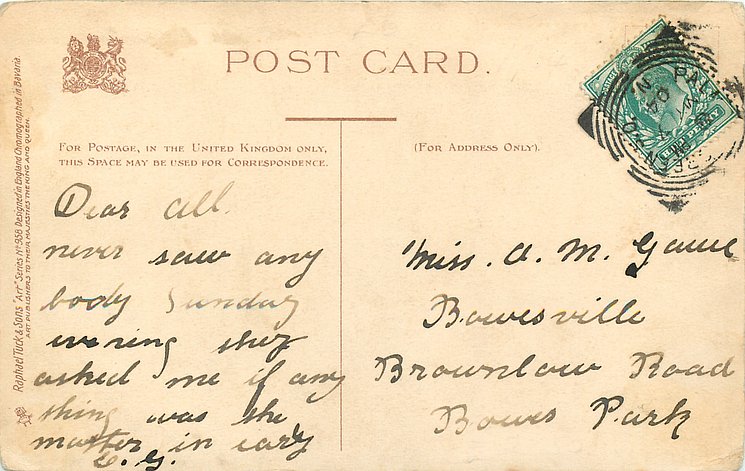 POST CARD.
FOR POSTAGE, IN THE UNITED KINGDOM ONLY,
THIS SPACE MAY BE USED FOR CORRESPONDENCE.
(FOR ADDRESS ONLY).
Raphael Tuck & Sons "Art" Series No 958 Designed in England Chromographed in Bavaria.
ART PUBLISHERS TO THEIR MAJESTIES THE KING AND QUEEN.
Dear all.
never saw any
body Sunday
evening they
asked me if any
thing was the
matter, in early
Miss. A. M.
Bowesville
Brownlow Road
Bowes Park